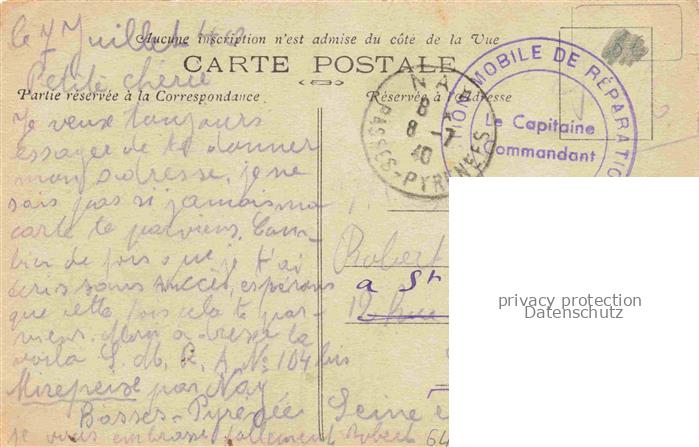 le 7 Juillet 1940
Aucune inscription n'est admise du côté de la Vue
Petite chérie
CARTE POSTALE
Partie réservée à la Correspondance
Réservée à l'Adresse
Je veux toujours
essayer de te donner
mon adresse, je ne
sais pas si jamais ma
carte te parviens. Com-
bien de fois que je t'ai
écris sans succès, espérons
que cette fois cela te par-
viens. Mon adresse la
voila S. M. R. A. No 104 bis
Mirepeise par Nay
Basses-Pyrénées
je vous embrasse follement Robert
NAY
8
8 - 7
40
BASSES-PYRENEES
ION MOBILE DE RÉPARATIO
Le Capitaine
Commandant
Robert
a St
12 Rue
Seine e
64
privacy protection
Datenschutz